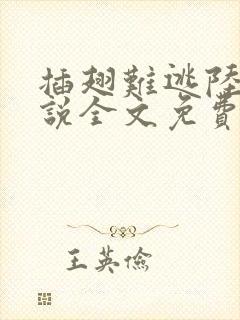 插翅難逃陸
說全文免費
王英儉